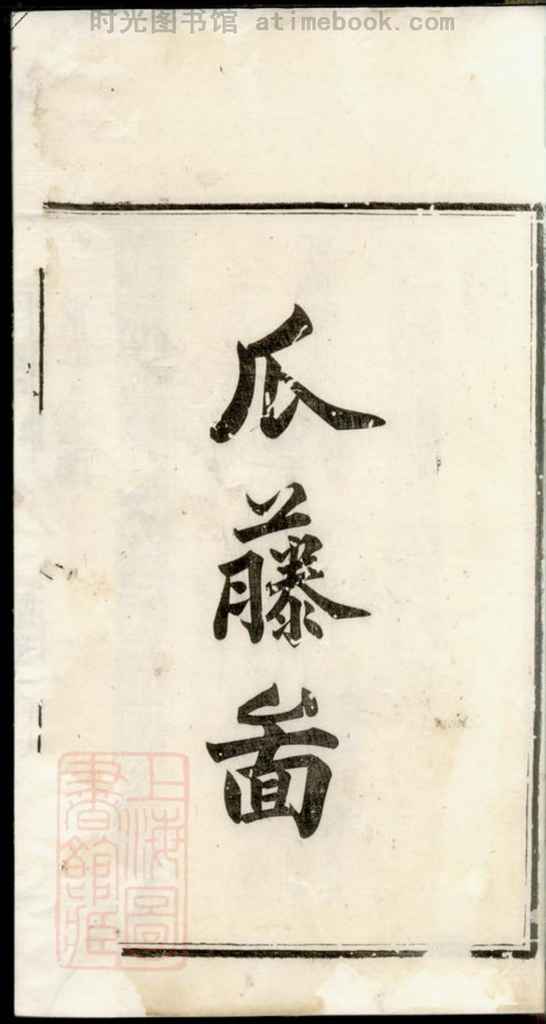 时光图书馆 atimebook.com
瓜藤
上海圖
書館藏